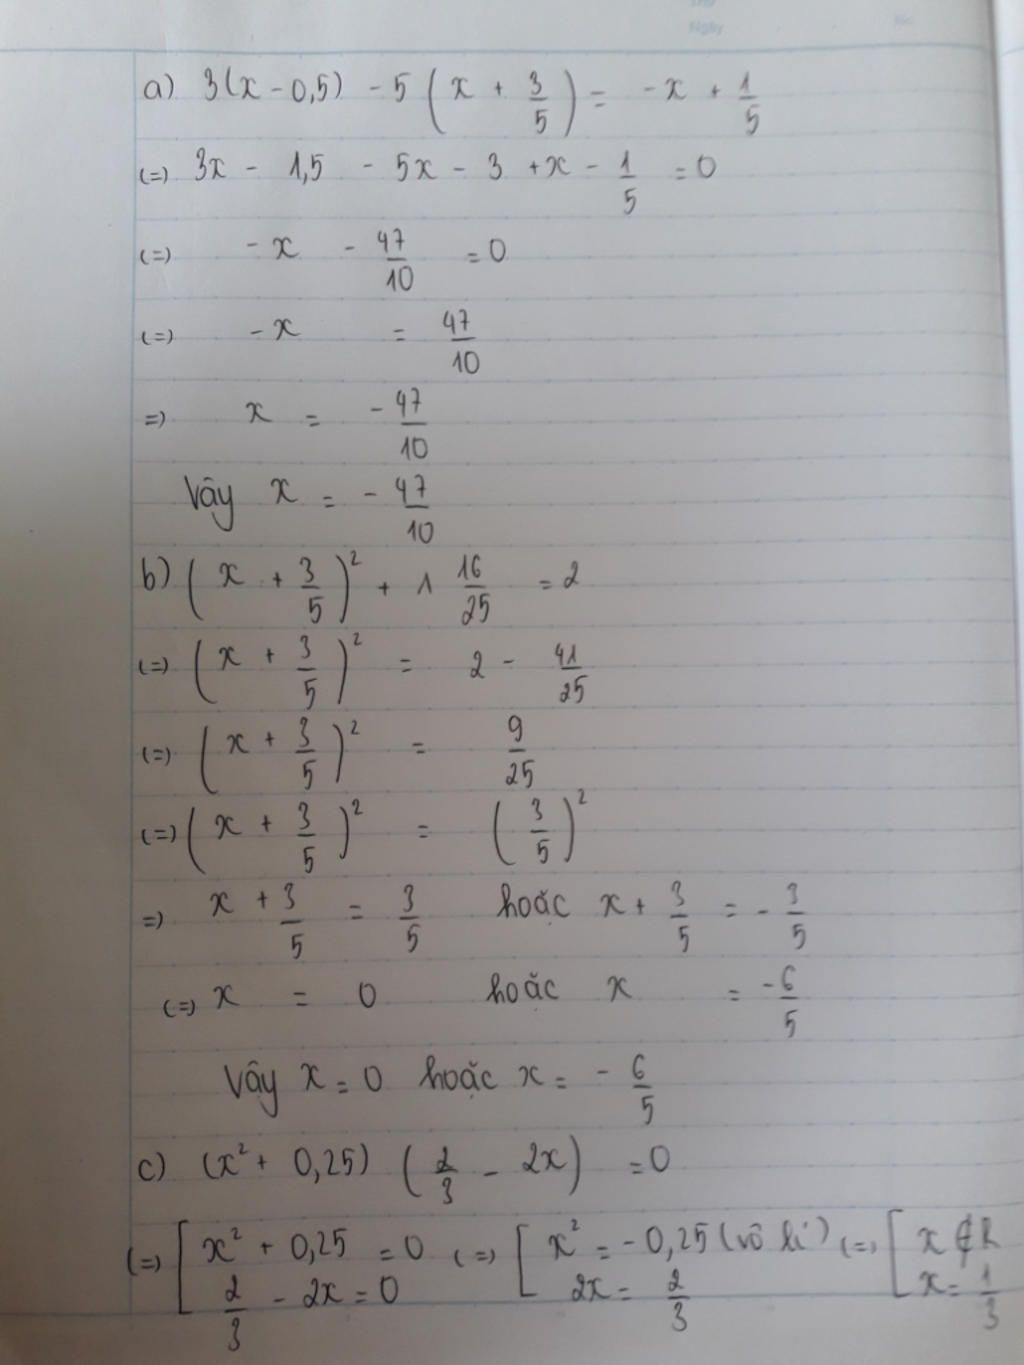 Thứ
Ngày No.
a) 3(x - 0,5) - 5 ( x + 3/5 ) = -x + 1/5
(=) 3x - 1,5 - 5x - 3 + x - 1/5 = 0
(=) -x - 47/10 = 0
(=) -x = 47/10
=) x = - 47/10
Vậy x = - 47/10
b) ( x + 3/5 )² + 1 16/25 = 2
(=) ( x + 3/5 )² = 2 - 41/25
(=) ( x + 3/5 )² = 9/25
(=) ( x + 3/5 )² = ( 3/5 )²
=) x + 3/5 = 3/5 hoặc x + 3/5 = - 3/5
(=) x = 0 hoặc x = -6/5
Vậy x = 0 hoặc x = - 6/5
c) (x² + 0,25) ( 2/3 - 2x ) = 0
(=) [ x² + 0,25 = 0 (=) [ x² = -0,25 (vô lí) (=) [ x ∉ R
2/3 - 2x = 0 2x = 2/3 x = 1/3